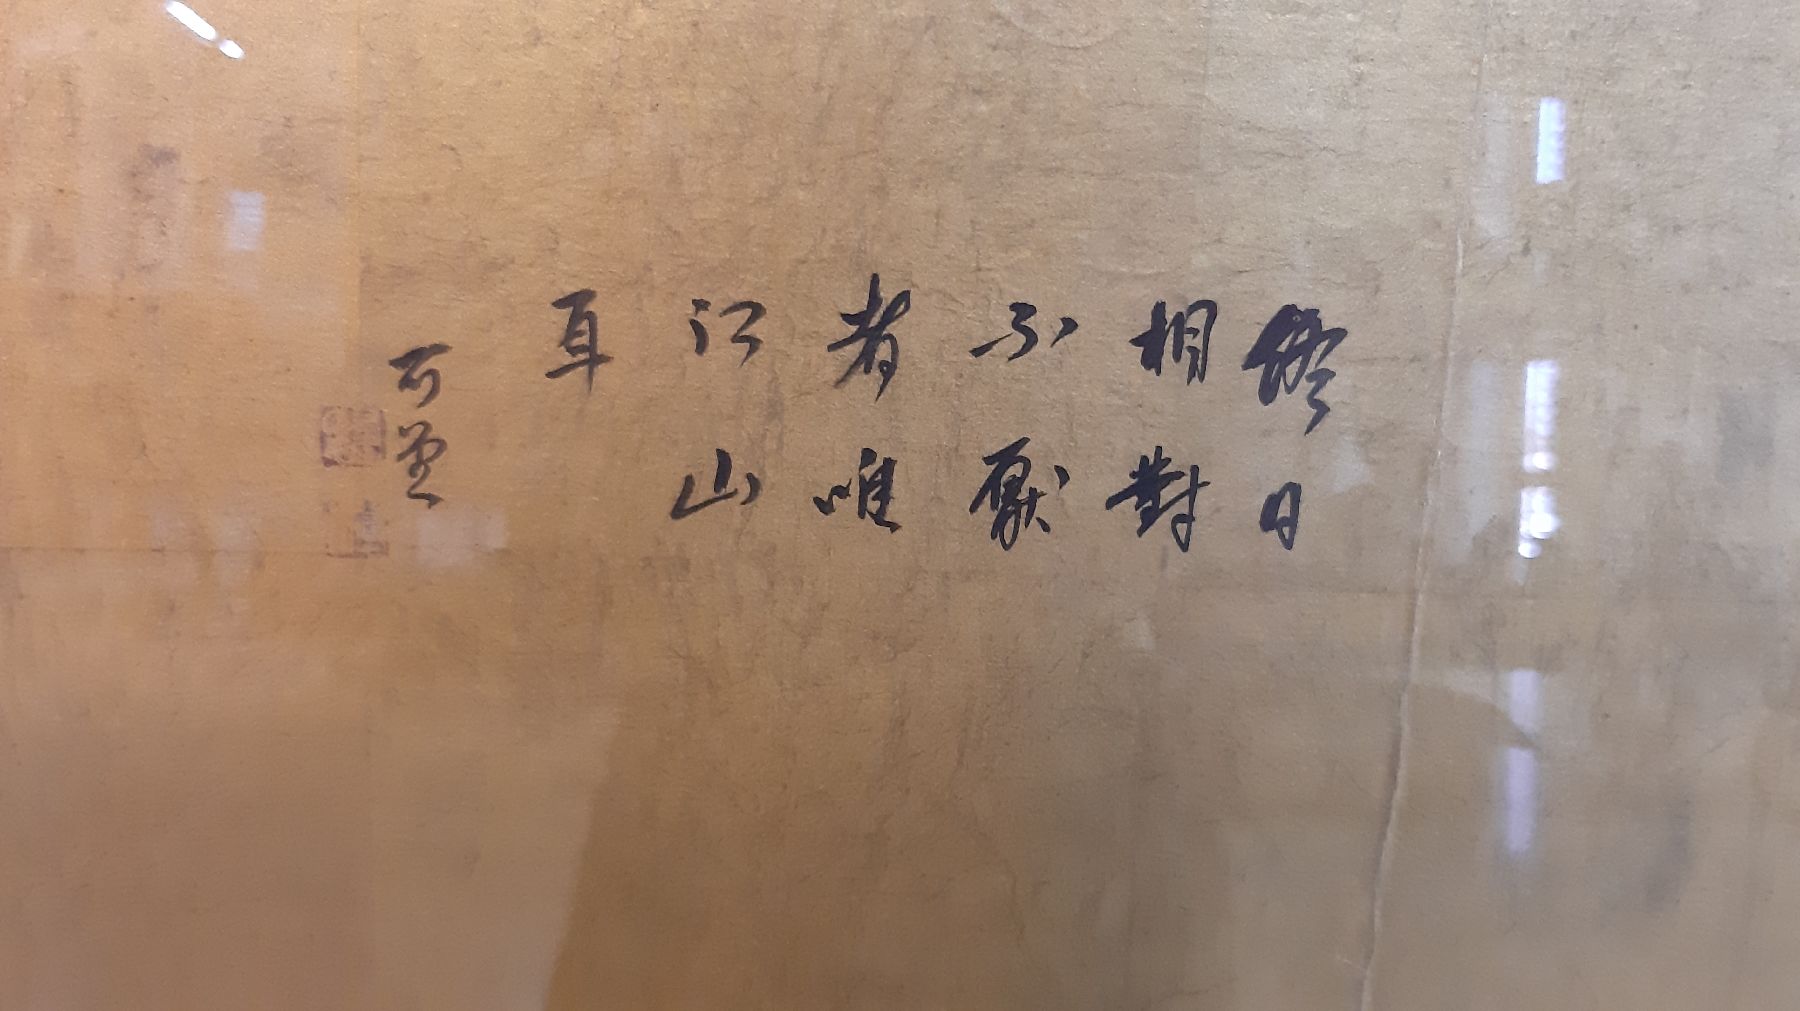 終日
相對
不厭
者唯
江山
耳
可堂